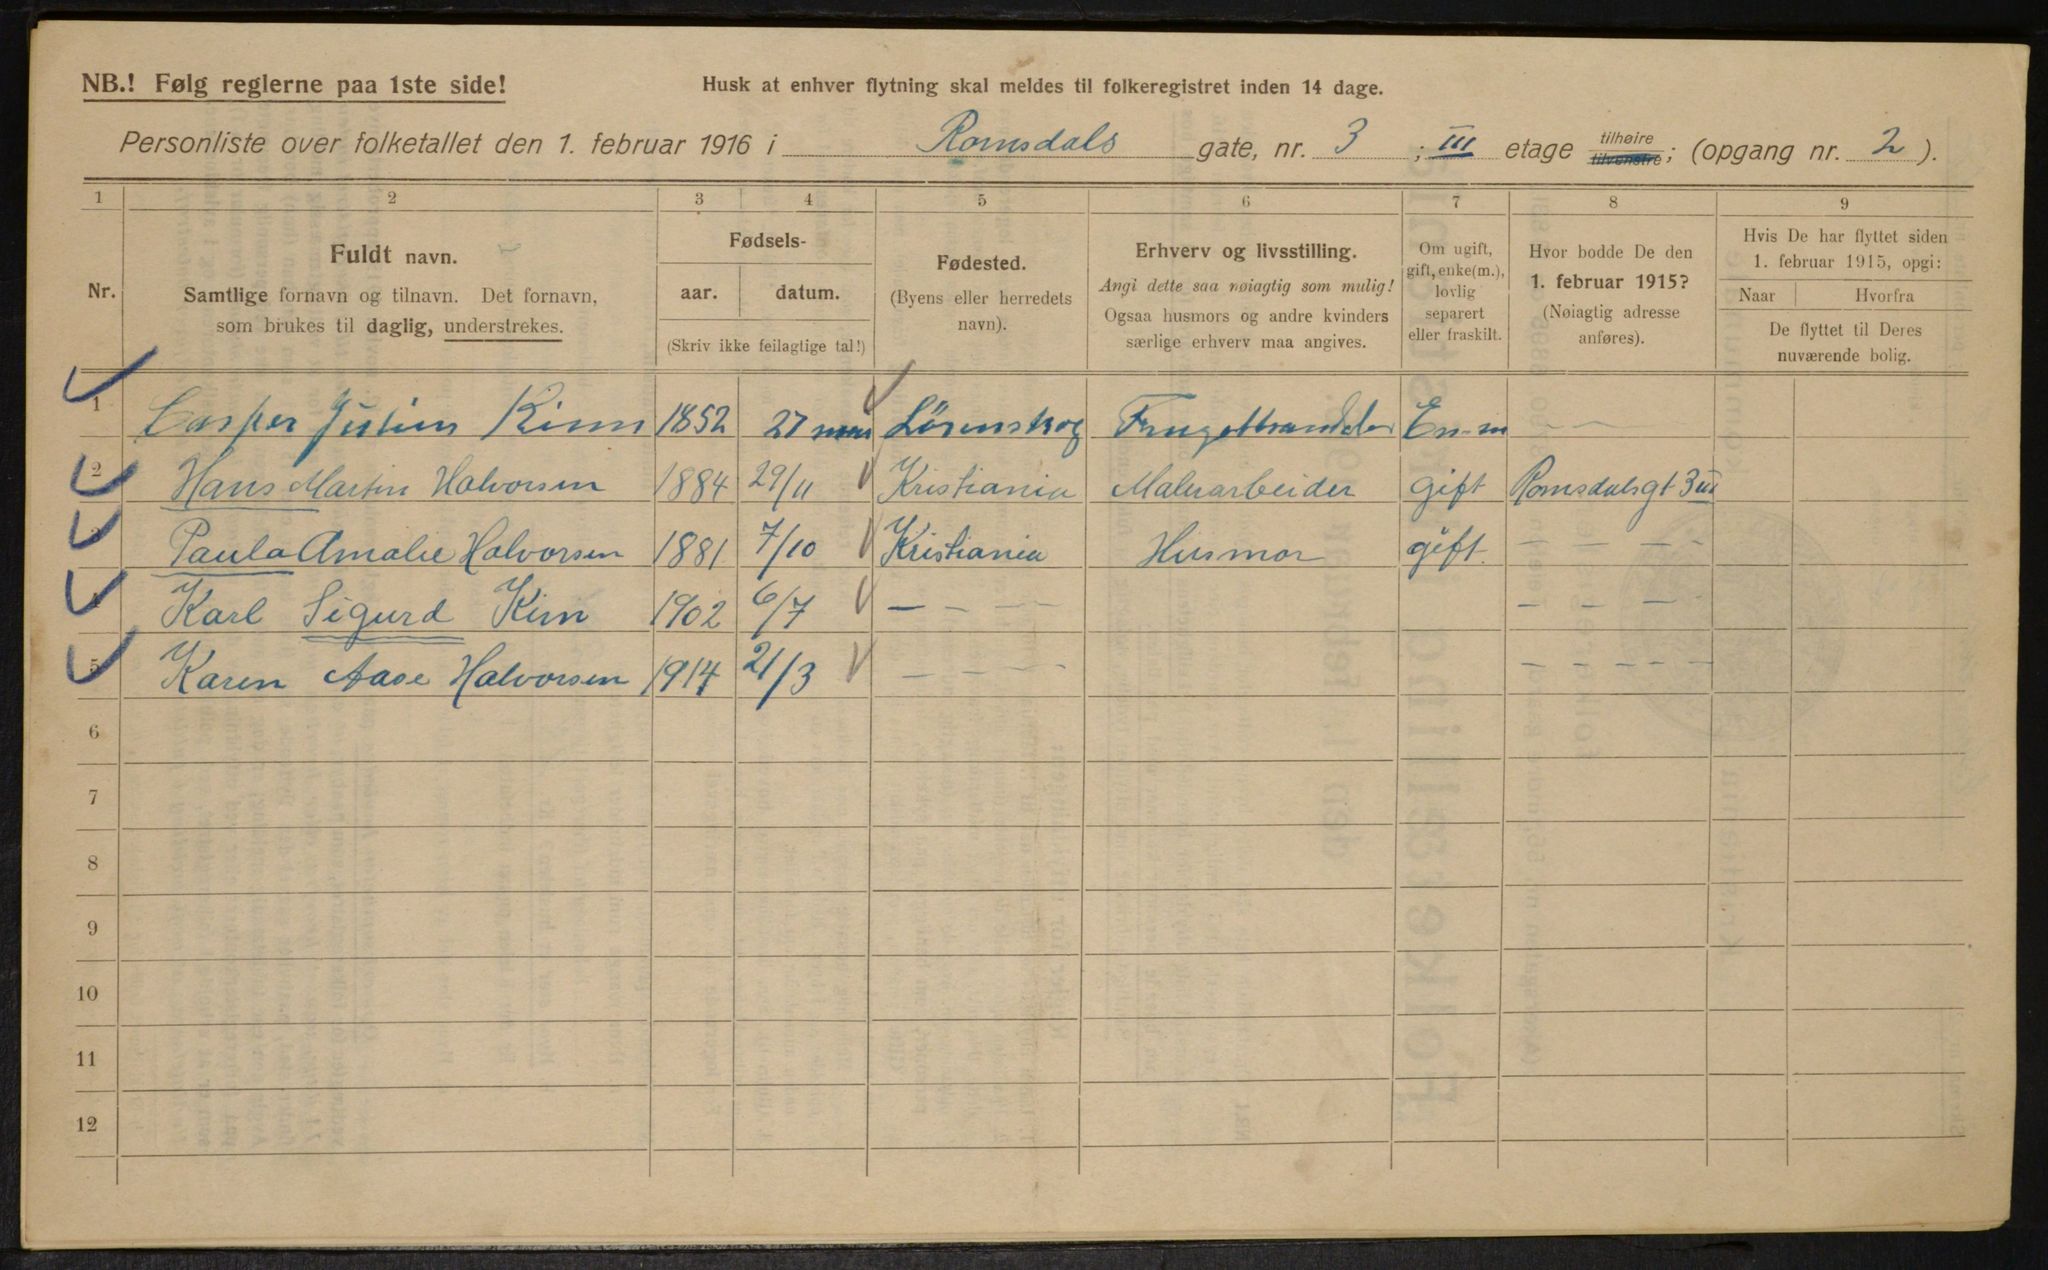 NB.! Følg reglerne paa 1ste side!
Husk at enhver flytning skal meldes til folkeregistret inden 14 dage.
Personliste over folketallet den 1. februar 1916 i Romsdals gate, nr. 3 ; III etage tilhøire tilvenstre; (opgang nr. 2).
1 2 3 4 5 6 7 8 9
Nr.
Fuldt navn.
Samtlige fornavn og tilnavn. Det fornavn,
som brukes til daglig, understrekes.
Fødsels-
aar. datum.
(Skriv ikke feilagtige tal!)
Fødested.
(Byens eller herredets
navn).
Erhverv og livsstilling.
Angi dette saa nøiagtig som mulig!
Ogsaa husmors og andre kvinders
særlige erhverv maa angives.
Om ugift,
gift, enke(m.),
lovlig
separert
eller fraskilt.
Hvor bodde De den
1. februar 1915?
(Nøiagtig adresse
anføres).
Hvis De har flyttet siden
1. februar 1915, opgi:
Naar Hvorfra
De flyttet til Deres
nuværende bolig.
1 Casper Julius 1852 27 mai Lörenskog En-m — —
2 Hans Martin Halvorsen 1884 29/11 Kristiania Malerarbeider gift Romsdalsgt 3 III
3 Paula Amalie Halvorsen 1881 7/10 Kristiania Husmor gift — — — —
4 Karl Sigurd Kirn 1902 6/7 — — — — — — —
5 Karen Aase Halvorsen 1914 21/3 — — — — — — — —
6
7
8
9
10
11
12